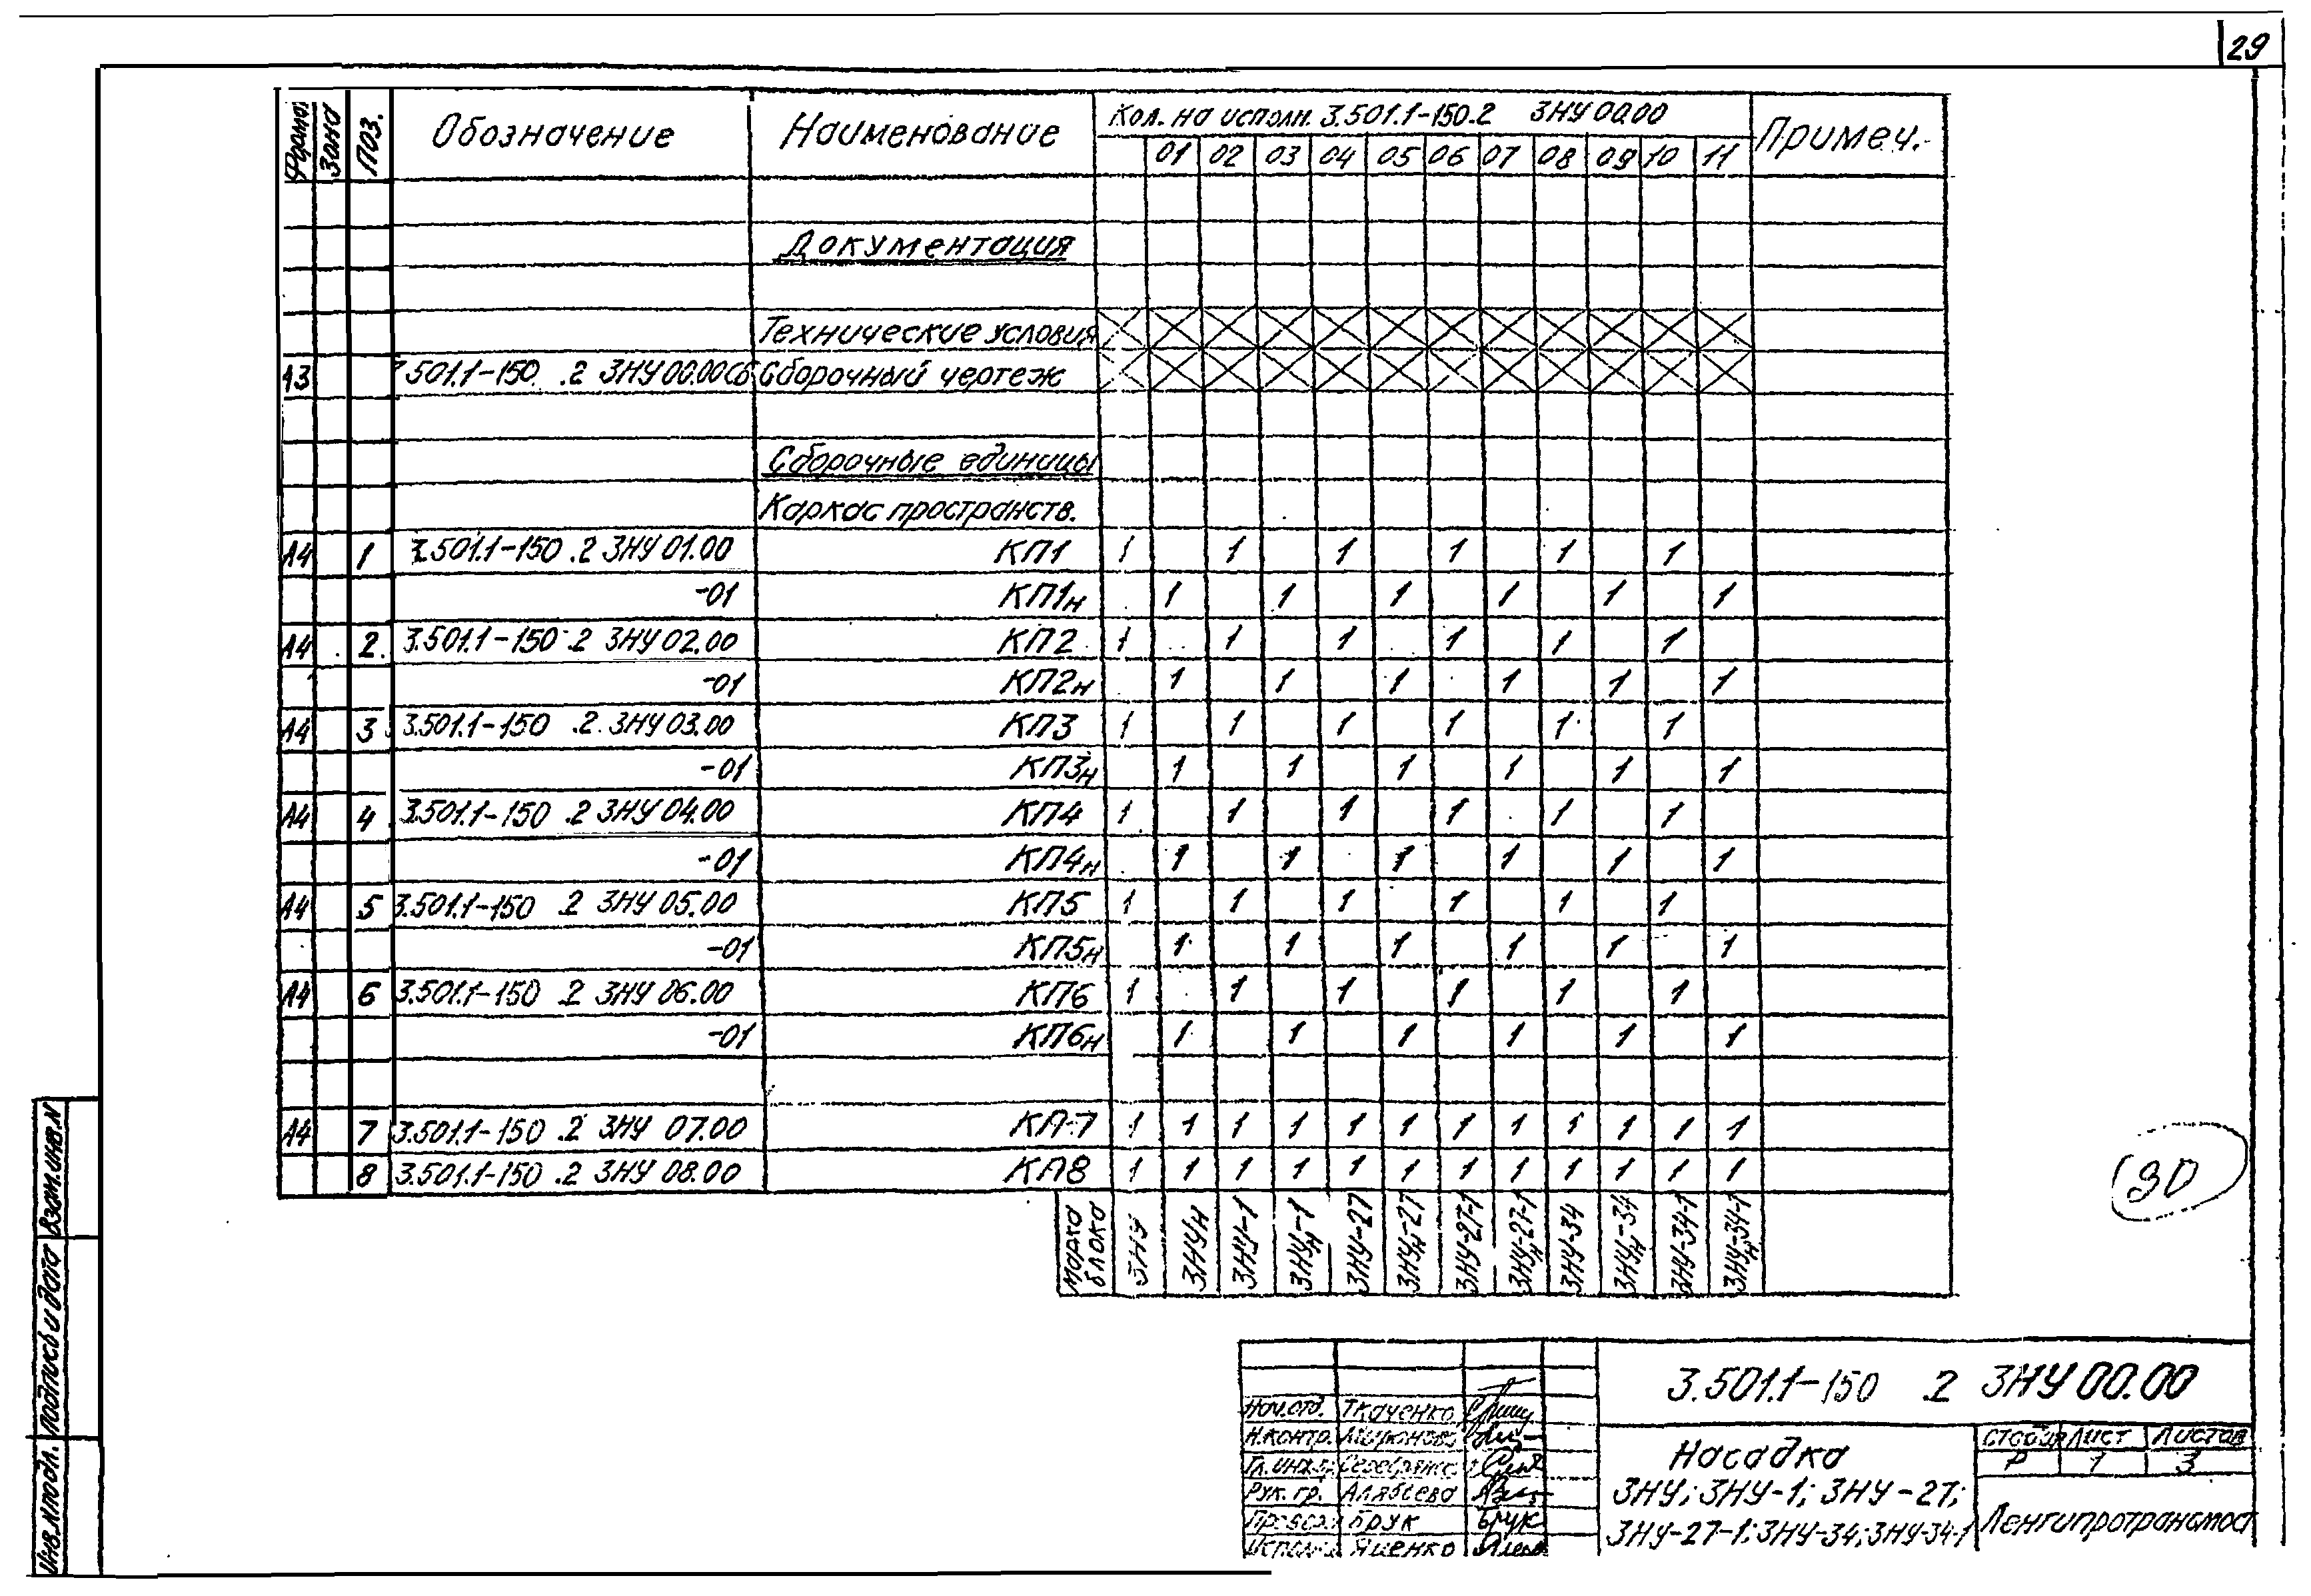 29
Формат Зона Поз. Обозначение Наименование Кол. на исполн. 3.501.1-150.2 ЗНУ 00.00 Примеч.
01 02 03 04 05 06 07 08 09 10 11
Документация
Технические условия
А3 3.501.1-150 .2 ЗНУ 00.00СБ Сборочный чертеж
Сборочные единицы
Каркас пространств.
А4 1 3.501.1-150 .2 ЗНУ 01.00 КП1 1 1 1 1 1 1
-01 КП1н 1 1 1 1 1 1
А4 2 3.501.1-150 .2 ЗНУ 02.00 КП2 1 1 1 1 1 1
-01 КП2н 1 1 1 1 1 1
А4 3 3.501.1-150 .2 ЗНУ 03.00 КП3 1 1 1 1 1 1
-01 КП3н 1 1 1 1 1 1
А4 4 3.501.1-150 .2 ЗНУ 04.00 КП4 1 1 1 1 1 1
-01 КП4н 1 1 1 1 1 1
А4 5 3.501.1-150 .2 ЗНУ 05.00 КП5 1 1 1 1 1 1
-01 КП5н 1 1 1 1 1 1
А4 6 3.501.1-150 .2 ЗНУ 06.00 КП6 1 1 1 1 1 1
-01 КП6н 1 1 1 1 1 1
А4 7 3.501.1-150 .2 ЗНУ 07.00 КП-7 1 1 1 1 1 1 1 1 1 1 1 1
8 3.501.1-150 .2 ЗНУ 08.00 КП8 1 1 1 1 1 1 1 1 1 1 1 1
Марка блока ЗНУ ЗНУн ЗНУ-1 ЗНУн-1 ЗНУ-27 ЗНУн-27 ЗНУ-27-1 ЗНУн-27-1 ЗНУ-34 ЗНУн-34 ЗНУ-34-1 ЗНУн-34-1
30
Взам.инв.N
Подпись и дата
Инв.Nподл.
3.501.1-150 .2 ЗНУ 00.00
Нач.отд. Ткаченко
Н.контр. Миронова
Гл.инж.
Рук. гр. Алябьева
Брук Брук
Яценко
Насадка
ЗНУ; ЗНУ-1; ЗНУ-27;
ЗНУ-27-1; ЗНУ-34; ЗНУ-34-1
Стадия Лист Листов
Р 1 3
Ленгипротрансмост